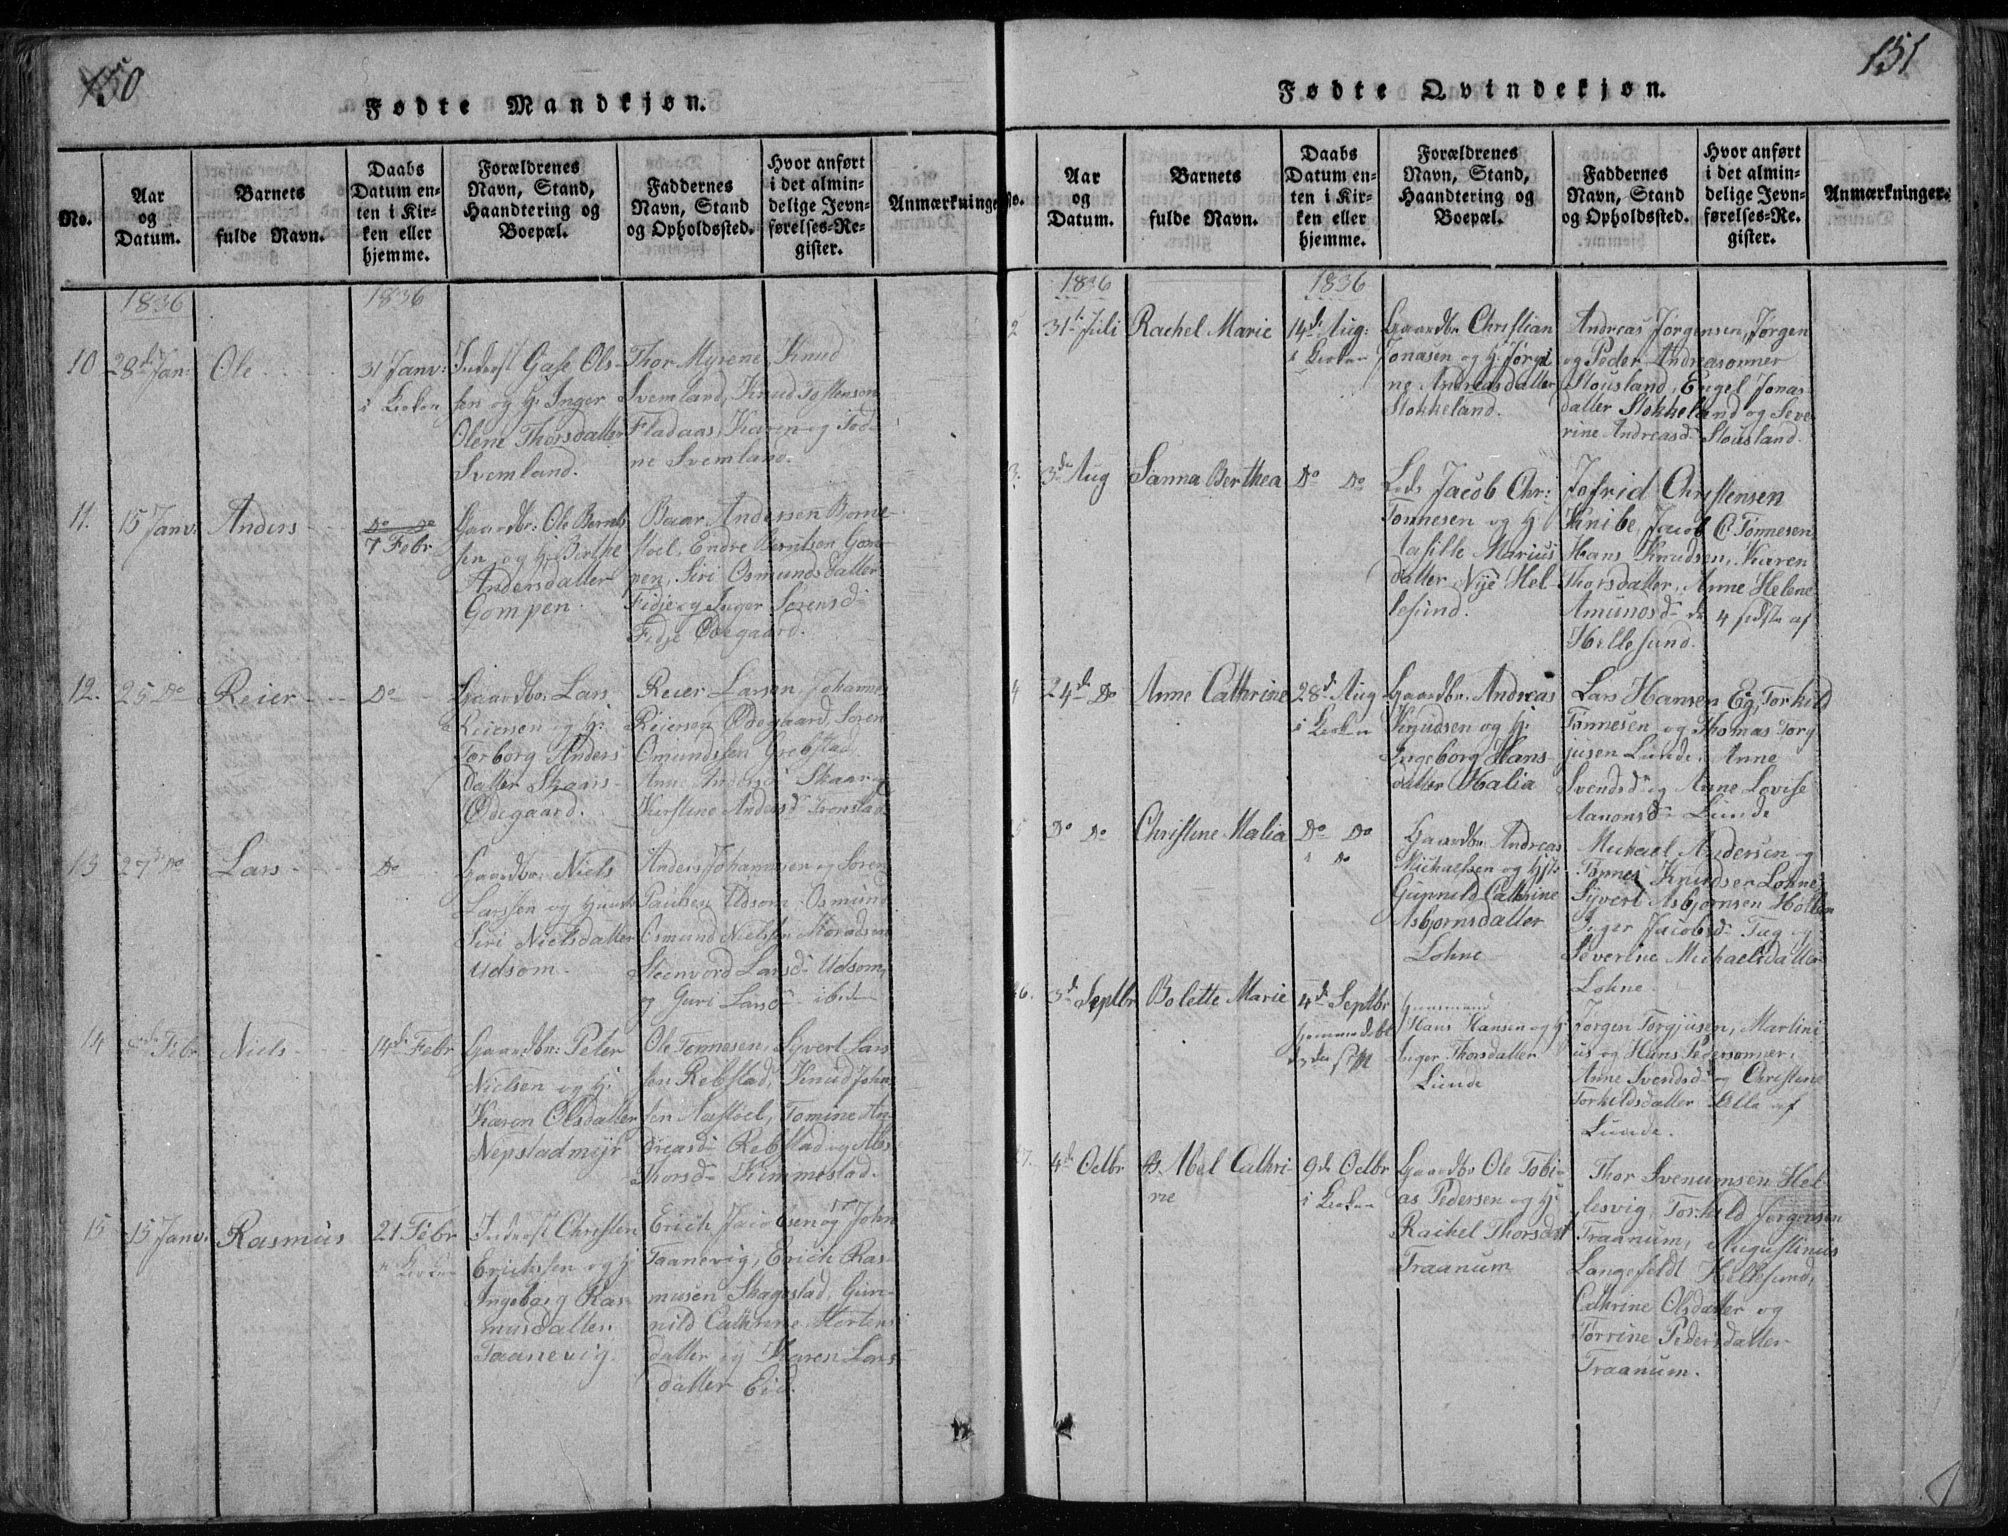 150
Fødte Mandkjøn.
No.
Aar
og
Datum.
Barnets
fulde Navn.
Daabs
Datum en-
ten i Kir-
ken eller
hjemme.
Forældrenes
Navn, Stand,
Haandtering og
Boepæl.
Faddernes
Navn, Stand
og Opholdssted.
Hvor anført
i det almin-
delige Jevn-
førelses-Re-
gister.
Anmærkninge
1836
1836
10
28d Jan:
Ole
31 Janv:
i Kirken
Inderst Ols-
sen og H: Inger
Olene Thorsdatter
Svemland.
Thor Myrene, Knud
Svemland, Knud
Fladaas, Karen og Tod-
ne Svemland.
11.
15 Janv:
Anders
Do Do
7 Febr
Gaardbr: Ole Bernts
sen og H: Berthe
Andersdatter
Gompen.
Baar Andersen Borne-
stoel, Endre Berntsen Gom-
pen, Siri Osmundsdatter
Fidje og Inger Sorensd
Fidje Ødegaard.
12.
25 Do
Reier
Do
Gaardbr: Lars
Reiersen og H:
Torborg Anders
datter Skaars-
Ødegaard.
Reier Larsen, Johannes
Reiersen Ødegaard, Soren
Omundssen Grebstad,
Andersd Skaar og
Kirstine Andersd
13
27d Do
Lars
Do
Gaardbr: Niels
Larssen og Hustr
Siri Nielsdatter
Udsom.
Anders Johannesen og Soren
Paulsen Udsom. Osmund
Osmund Nielssen
Steenvord Larsd Udsom,
og Guri Larsd ibidem
14
Febr
Niels
14d Febr
Gaardbr: Peter
Nielsen og H:
Karen Olsdatter
Nepstadmyr
Ole Tonnesen, Syvert Lars
sen Rebstad, Knud John
sen Aastoel, Tomine An-
dreasd Rebstad og Abs
Thorsd Kimmestad.
15
15 Janv:
Rasmus
21 Febr
i Kirken
Inderst Christen
Erichssen og H:
Ingeborg Ras-
musdatter
Taanevig.
Erich Jacobsen og John
Taanevig, Erich Ras-
musen Skagestad, Gun-
nild Cathrine Mortens
datter og Karen Lars-
datter Eid.
151
Fødte Qvindekjøn.
No.
Aar
og
Datum.
Barnets
fulde Navn.
Daabs
Datum en-
ten i Kir-
ken eller
hjemme.
Forældrenes
Navn, Stand,
Haandtering og
Boepæl.
Faddernes
Navn, Stand
og Opholdssted.
Hvor anført
i det almin-
delige Jevn-
førelses-Re-
gister.
Anmærkninger.
1836
1836
2
31t Juli
Rachel Marie
14d Aug:
i Kirken
Gaardbr Christian
Jonasen og H: Jørgi
ne Andreasdatter
Stokkeland.
Andreas Jørgensen, Jørgen
og Peder Andreasønner
Stousland, Engel Jonas
datter Stokkeland og Seve-
rine Andreasd Stousland.
3.
3de Aug
Sanna Berthea
Do Do
Lods Jacob Chr:
Tonnesen og H:
Marius
datter Nye Hel
lesund.
Jofrid Christensen
Knibe, Jacob C: Tønnesen
Hans Knudsen, Karen
Thorsdatter, Anne Helene
Amundsd de 4 sidste af
Hellesund.
4
24d Do
Anne Cathrine
28d Aug
i Kirken
Gaardbr. Andreas
Knudsen og H:
Ingeborg Hans-
datter Halia
Lars Hansen Eg, Torkild
Tønnesen og Thomas Torg
jusen Lunde, Anne
Svendsd og Anne Lovise
Aanonsd Lunde
5
Do Do
Christine Malia
Do Do
Do
Gaardbr. Andreas
Michaelsen og Hst:
Gunnild Cathrine
Asbjørnsdatter
Lohne
Michael Andersen og
Tønnes Knudsen Lohne
Syvert Asbjørnsen Holten
Inger Jacobsd Tag og
Severine Michaelsdatter
Lohne.
26.
3d Septbr
Bolette Marie
4d Septbr
hjemmedøbt
Hans Hansen og H:
Inger Thorsdatter
Lunde
Jørgen Torgjusen, Martini
us og Hans Pedersønner,
Anne Svendsd og Christine
Torkildsdatter alle af
Lunde.
27.
4d Octbr
Abel Cathri-
ne
9d Octbr
i Kirken
Gaardbr Ole Tobi-
as Pedersen og H:
Rachel Thorsdat
Traanum
Thor Svenumsen Hel-
lesvig, Torkild Jørgensen
Traanum, Augustinus
Langefeldt Hellesund,
Cathrine Olsdatter og
Torrine Pedersdatter
Traanum.